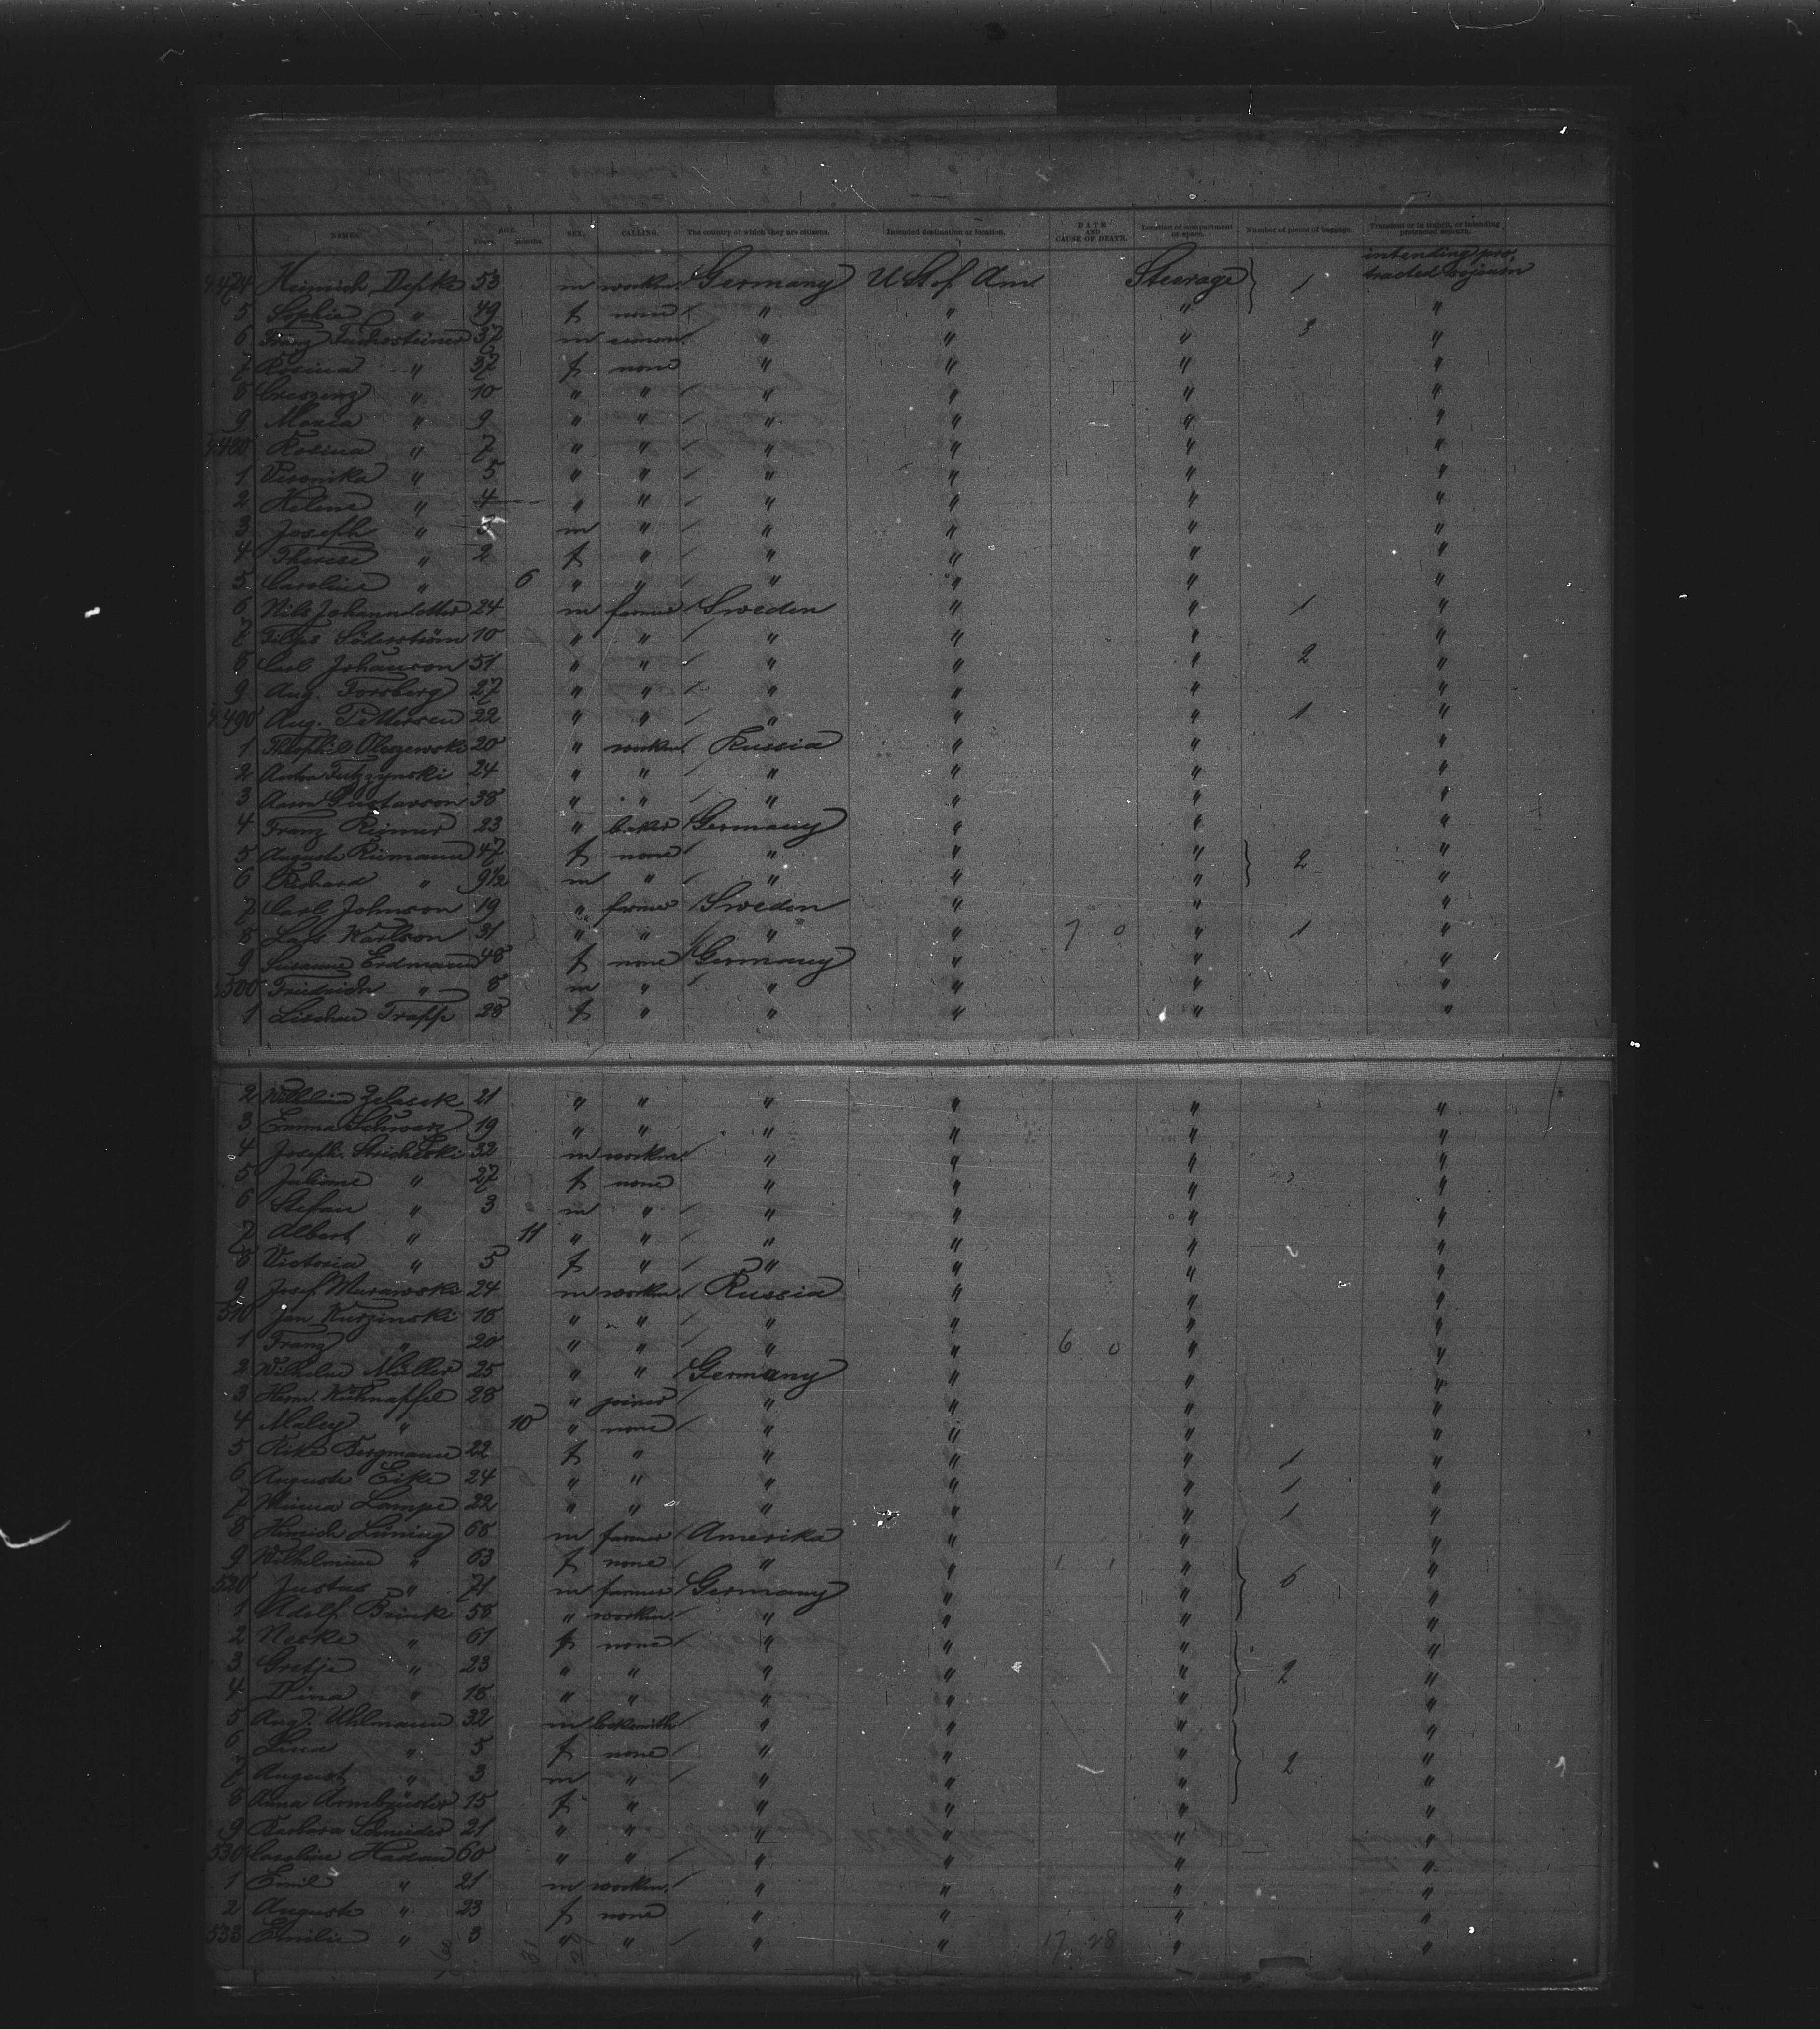 NAMES. AGE. Years. Months. SEX. CALLING. The country of which they are citizens. Intended destination or location. DATE AND CAUSE OF DEATH. Location of compartment or space. Number of pieces of baggage. Transient or in transit, or intending protracted sojourn.
intending pro
474 Heinrich Depke 53 m workm. Germany U St of Am. Steerage 1 tracted sojourn
5 Sophie " 49 f none " " " "
6 Franz 37 m " " " 3 "
7 Rosina " 37 f none " " " "
8 Crescenz " 10 " " " " " "
9 Maria " 9 " " " " " "
480 Rosina " 7 " " " " " "
1 Veronika " 5 " " " " " "
2 Helene " 4 " " " " " "
3 Joseph " m " " " " "
4 Therese " 2 f " " " " "
5 Caroline " 6 " " " " " "
6 Nils 24 m farmer Sweden " " 1 "
7 Söderström 10 " " " " " "
8 Carl Johanson 51 " " " " " 2 "
9 Aug. Forsberg 27 " " " " " "
490 Aug. Pettersen 22 " " " " " 1 "
1 Olszewski 20 " workm. Russia " " "
2 Anton 24 " " " " " "
3 Gustavson 38 " " " " " "
4 Franz Reimer 23 " baker Germany " " "
5 Auguste Riemann 47 f none " " " 2 "
6 Richard " 9½ m " " " " "
7 Carl Johnson 19 " farmer Sweden " " "
8 Lars Karlson 31 " " " " 7 0 " 1 "
9 Susanne Erdmann 48 f none Germany " " "
500 Friedrich " 8 m " " " " "
1 Lischen Trapp 28 f " " " " "
2 Wilhelmine Zelasek 21 " " " " " "
3 Emma Schwarz 19 " " " " " "
4 Joseph 32 m workm. " " " "
5 Juliane " 27 f none " " " "
6 Stefan " 3 m " " " " "
7 Albert " 11 " " " " " "
8 Victoria " 5 f " " " " "
9 Josef Murawski 24 m workm. Russia " " "
510 Jan Kurzinski 18 " " " " " "
1 Franz " 20 " " " " 6 0 " "
2 Wilhelm Müller 25 " " Germany " " "
3 Herm. Kühnapfel 28 " joiner " " " "
4 " 10 " none " " " "
5 Rike Bergmann 22 f " " " " 1 "
6 Auguste Eike 24 " " " " " 1 "
7 Minna Lampe 22 " " " " " 1 "
8 Hinrich Lüning 68 m farmer Amerika " " "
9 Wilhelmine " 63 f none " " 1 1 " "
520 Justus " 71 m farmer Germany " " 6 "
1 Adolf Brink 58 " workm. " " " "
2 " 61 f none " " " "
3 Gretje " 23 " " " " " 2 "
4 Dina " 18 " " " " " "
5 Aug. Uhlmann 32 m locksmith " " " "
6 Lina " 5 f none " " " "
7 August " 3 m " " " " 2 "
8 Anna Armbrüster 15 f " " " " "
9 Barbara Schnieder 21 " " " " " "
530 Caroline Hadan 60 " " " " " "
1 Emil " 21 m workm. " " " "
2 Auguste " 23 f none " " " "
533 Emilie " 3 " " " " 17 28 " "